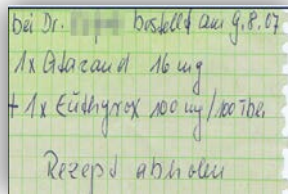 bei Dr. bestellt am 9.8.07
1x Atacand 16 mg
+ 1x Euthyrox 100 mg/100 Tbl.
Rezept abholen